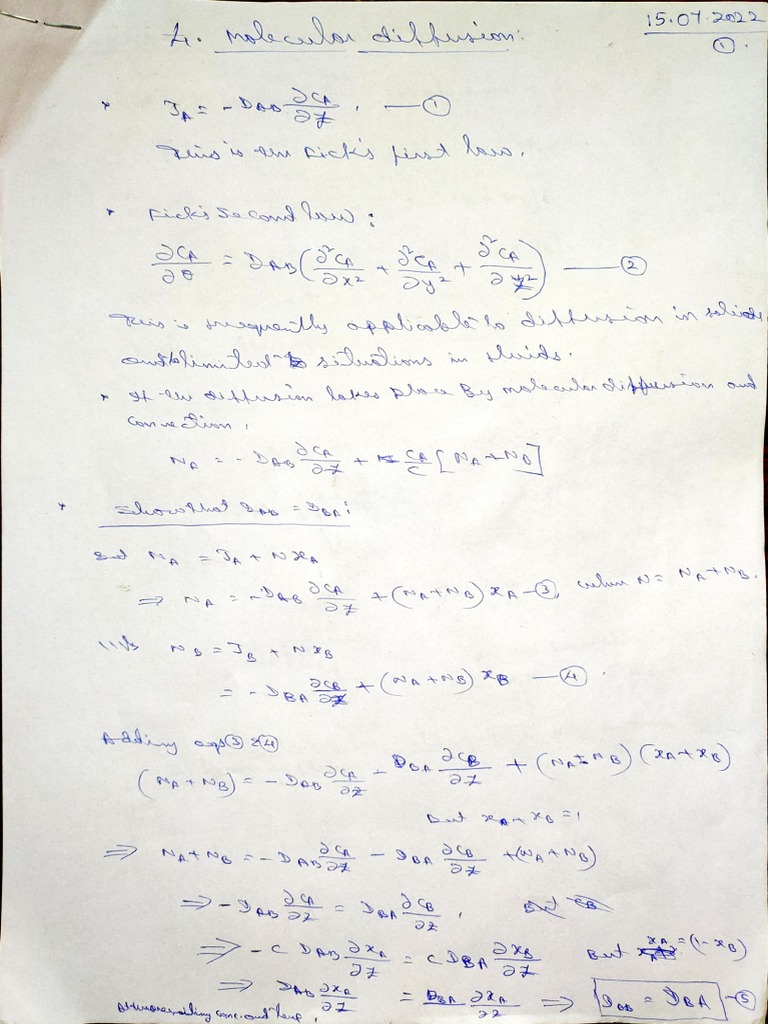 15.07.2022
①.
4. Molecular diffusion:
* J_A = -D_AB ∂C_A/∂Z. —①
This is the Fick's first law.
* Fick's Second law:
∂C_A/∂θ = D_AB (∂²C_A/∂x² + ∂²C_A/∂y² + ∂²C_A/∂Z²) —②
This is frequently applicable to diffusion in solids,
and limited situations in fluids.
* If the diffusion takes place By molecular diffusion and
convection,
N_A = -D_AB ∂C_A/∂Z + C_A/C [N_A + N_B]
* Show that D_AB = D_BA:
N_A = J_A + N x_A
⇒ N_A = -D_AB ∂C_A/∂Z + (N_A + N_B) x_A —③, when N = N_A + N_B.
|||ly N_B = J_B + N x_B
= -D_BA ∂C_B/∂Z + (N_A + N_B) x_B —④.
Adding eqs ③ & ④
(N_A + N_B) = -D_AB ∂C_A/∂Z - D_BA ∂C_B/∂Z + (N_A + N_B) (x_A + x_B)
But x_A + x_B = 1
⇒ N_A + N_B = -D_AB ∂C_A/∂Z - D_BA ∂C_B/∂Z + (N_A + N_B)
⇒ -D_AB ∂C_A/∂Z = D_BA ∂C_B/∂Z.
⇒ -C D_AB ∂x_A/∂Z = C D_BA ∂x_B/∂Z But x_A = (1 - x_B)
⇒ D_AB ∂x_A/∂Z = D_BA ∂x_A/∂Z ⇒ D_AB = D_BA —⑤
At prevailing conc. and temp.